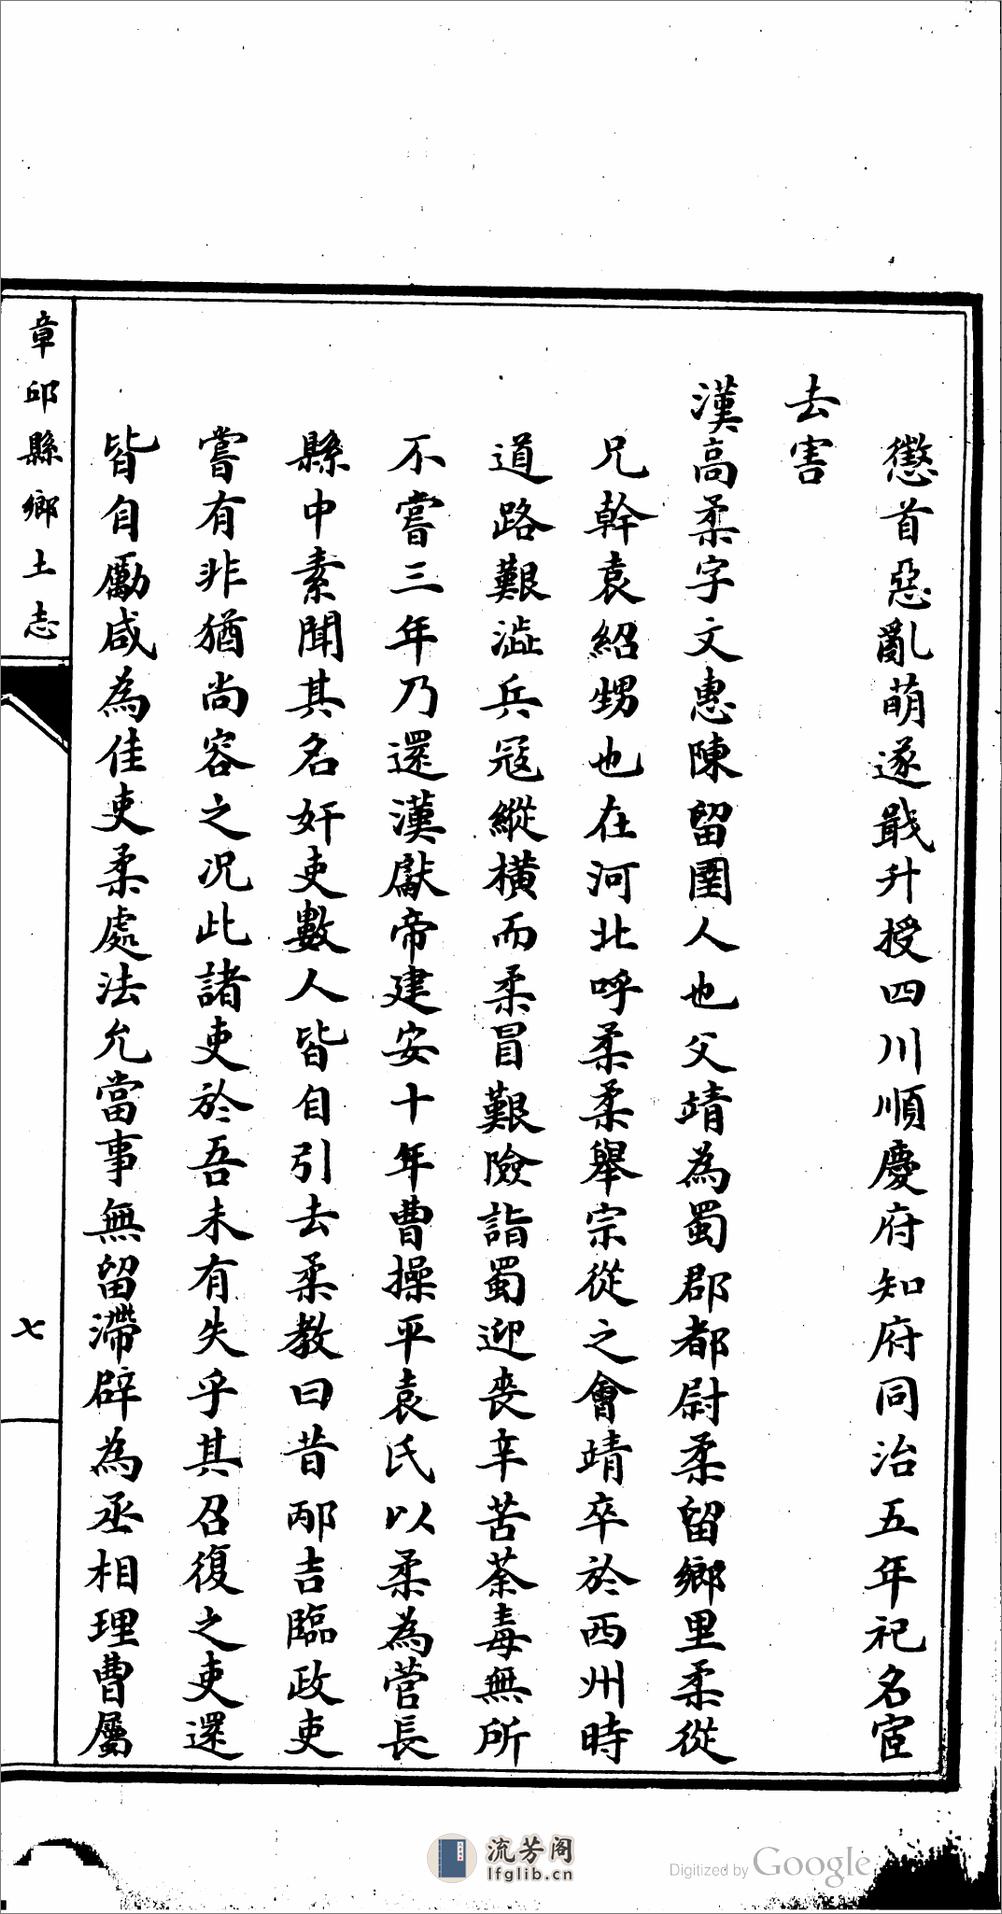 懲首惡亂萌遂戢升授四川順慶府知府同治五年祀名宦
去害
漢高柔字文惠陳留圉人也父靖為蜀郡都尉柔留鄉里柔從
兄幹袁紹甥也在河北呼柔柔舉宗從之會靖卒於西州時
道路艱澁兵寇縱橫而柔冒艱險詣蜀迎喪辛苦荼毒無所
不嘗三年乃還漢獻帝建安十年曹操平袁氏以柔為菅長
縣中素聞其名奸吏數人皆自引去柔教曰昔邴吉臨政吏
嘗有非猶尚容之况此諸吏於吾未有失乎其召復之吏還
皆自勵咸為佳吏柔處法允當事無留滯辟為丞相理曹屬
章邱縣鄉土志
七
流芳阁
lfglib.cn
Digitized by Google